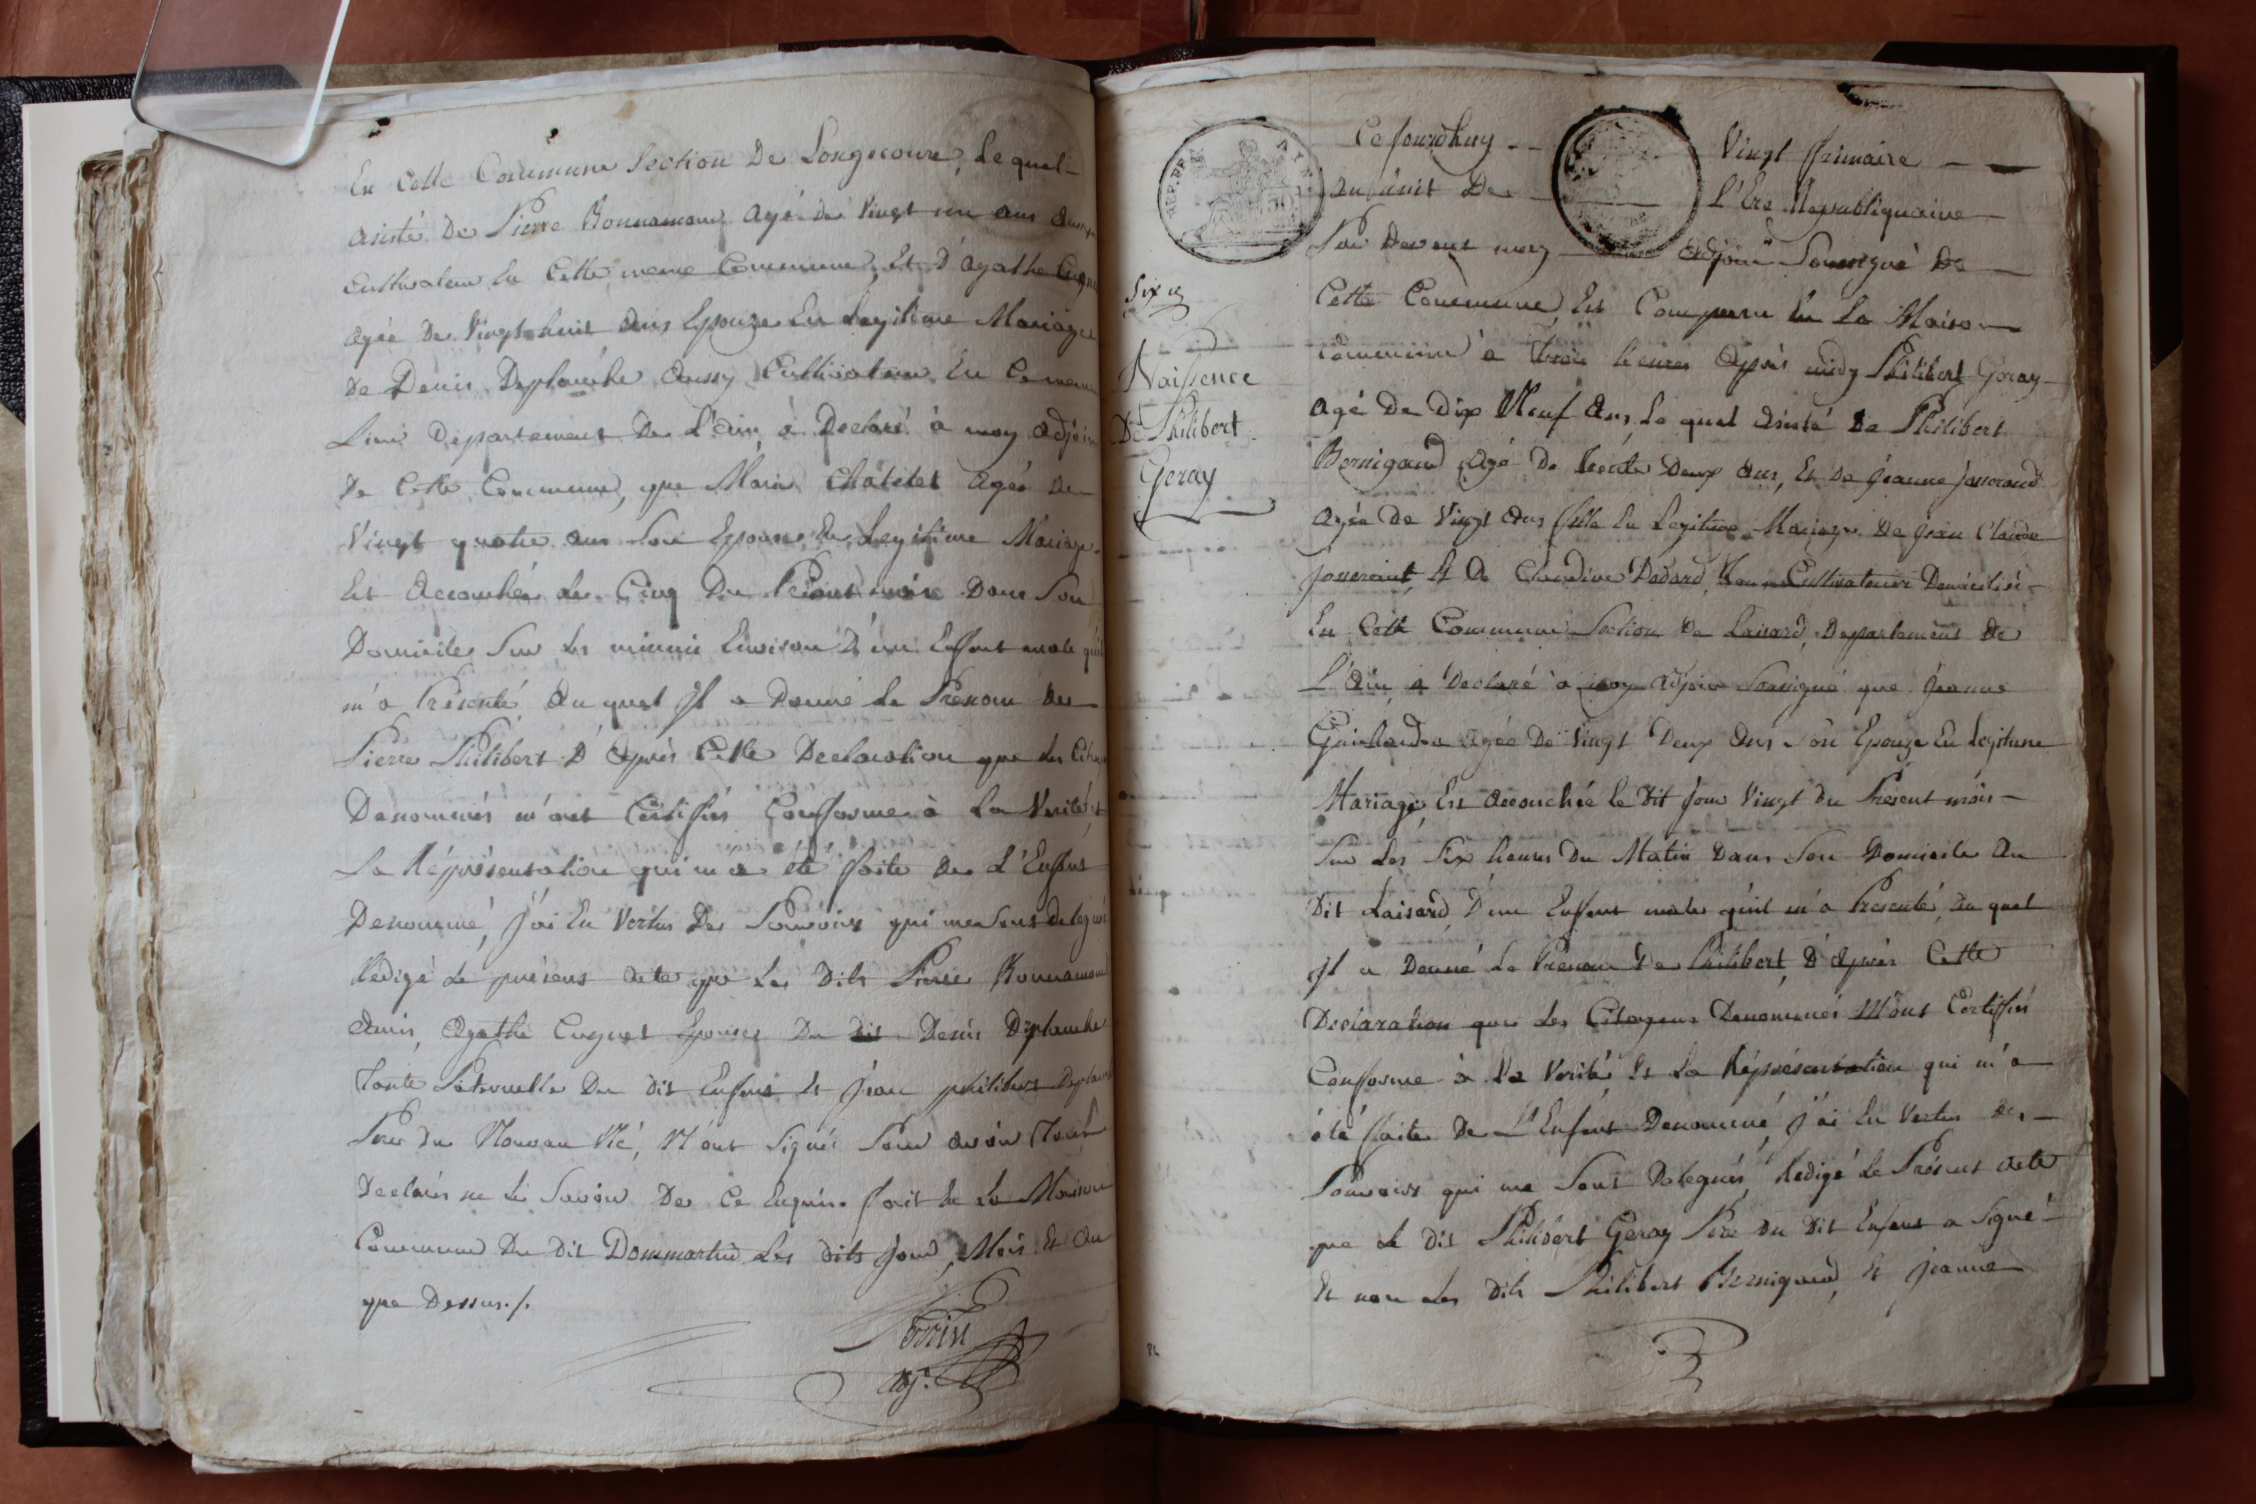 En Cette Commune Section De Longecour, Le quel
assisté De Pierre Bonnamour agé de Vingt un ans
Cultivateur En Cette meme Commune, Et D'agathe Cugnet
agée De Vingt huit ans Epouze En Legitime Mariage
De Denis Deplanche Aussy Cultivateur En Ce meme
Lieu Departement De L'ain, a Declaré à moy adjoint
De Cette Commune, que Marie Chatelet agée de
Vingt quatre ans Son Epouse En Legitime Mariage
Est Accouchée Le Cinq Du Présent mois Dans Son
Domicile Sur Les minuit Environ D'un Enffant male qu'il
m'a Présenté, Au quel Il a Donné Le Prénom de
Pierre Philibert D'après Cette Declaration que Les Citoyens
Denommés m'ont Certiffiés Conforme à La Verité, et
La Réprésentation qui m'a été faite de L'Enffant
Denommé, J'ai En Vertus Des Pouvoirs qui me Sont delegués
Rédigé Le présent acte que Les Dits Pierre Bonnamour
Amis, Agathe Cugnet Epouse Du dit Denis Deplanche
Tante Paternelle Du dit Enfant Et Jean philibert Deplanche
Pere du Nouveau Né, N'ont Signés Pour avoir
Declarés ne Le Savoir De Ce Enquis. fait En La Maison
Commune Du Dit Dommartin Les dits Jour, Mois Et An
que Dessus./.
Perrin
adj.t
REP. FRA
Cejourdhuy - - Vingt frimaire - -
an huit De L'Ere Republiquaine
Par Devant moy adjoint Soussigné De
Six e
Cette Commune, Est Comparu En La Maison
commune à trois heures Après midy Philibert Geray
Naissence
De Philibert
Geray
Agé De Dix Neuf Ans, Le quel assisté De Philibert
Bernigaud Agé De trente Deux Ans, Et De Jeanne Josserand
agée De Vingt Ans fille En Legitime Mariage De Jean Claude
Josserand, Et De Claudine Dodard, Cultivateurs Domiciliés
En Cette Commune Section De Laisard, Departement De
L'Ain, a Declaré à moy Adjoint Soussigné que Jeanne
agée De Vingt Deux Ans Son Epouze En Legitime
Mariage, Est Accouchée Le Dit Jour Vingt Du Présent mois
Sur Les Six heures Du Matin Dans Son Domicile Au
Dit Laisard, D'un Enffant male qu'il m'a Presenté, Au quel
Il a Donné Le Prénom De Philibert, D'Après Cette
Declaration que Les Citoyens Denommés M'ont Certiffiés
Conforme à La Verité Et La Réprésentation qui m'a
été faite De L'Enfant Denommé, J'ai En Vertus des
Pouvoirs qui me Sont Delegués, Redigé Le Présent Acte
que Le Dit Philibert Geray Pere Du Dit Enfant a Signé
Et non Les Dits Philibert Bernigaud, Et Jeanne